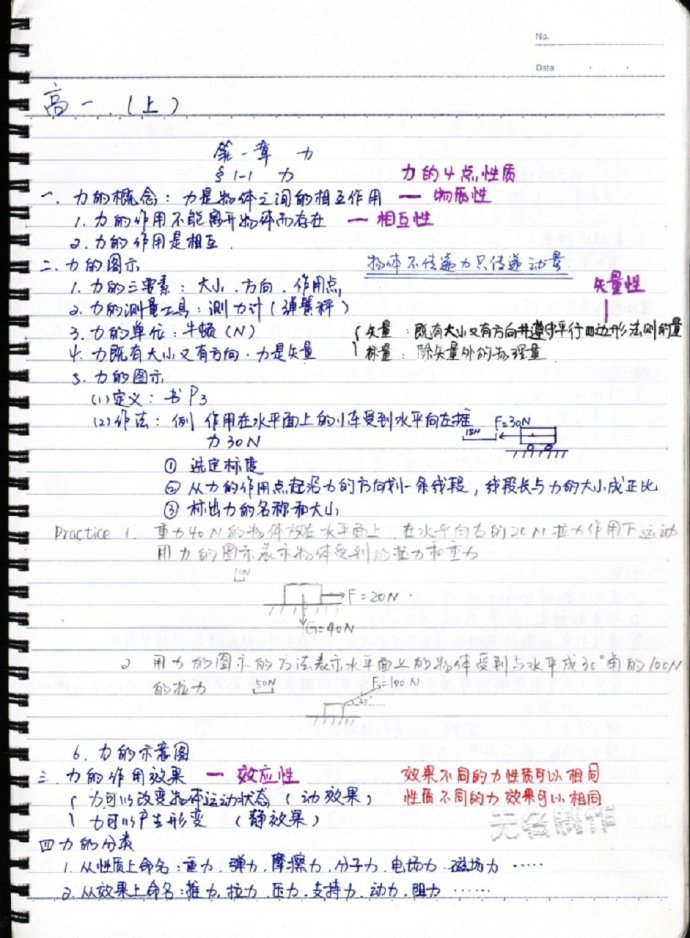 No.
Date
高一.(上)
第一章 力
§1-1 力 力的4点性质
一. 力的概念：力是物体之间的相互作用 — 物质性
1. 力的作用不能离开物体而存在 — 相互性
2. 力的作用是相互.
二. 力的图示 物体不传递力只传递动量
1. 力的三要素：大小.方向.作用点 矢量性
2. 力的测量工具：测力计(弹簧秤)
3. 力的单位：牛顿(N) 矢量：既有大小又有方向并遵守平行四边形法则的量
4. 力既有大小又有方向.力是矢量 标量：除矢量外的物理量
5. 力的图示
(1)定义：书P3
(2)作法：例 作用在水平面上的小车受到水平向左推 F=30N
力30N
① 选定标度
② 从力的作用点起沿力的方向划一条线段，线段长与力的大小成正比
③ 标出力的名称和大小
Practice 1. 重力40N的物体放在水平面上.在水平向右的20N拉力作用下运动
用力的图示表示物体受到的拉力和重力
10N
F=20N
G=40N
2 用力的图示的方法表示水平面上的物体受到与水平成30°角的100N
的拉力 50N F=100N
30°
6. 力的示意图
三. 力的作用效果 — 效应性 效果不同的力性质可以相同
力可以改变物体运动状态 (动效果) 性质不同的力效果可以相同
力可以产生形变 (静效果)
无名制作
四 力的分类
1. 从性质上命名：重力.弹力.摩擦力.分子力.电场力.磁场力……
2. 从效果上命名：推力.拉力.压力.支持力.动力.阻力……